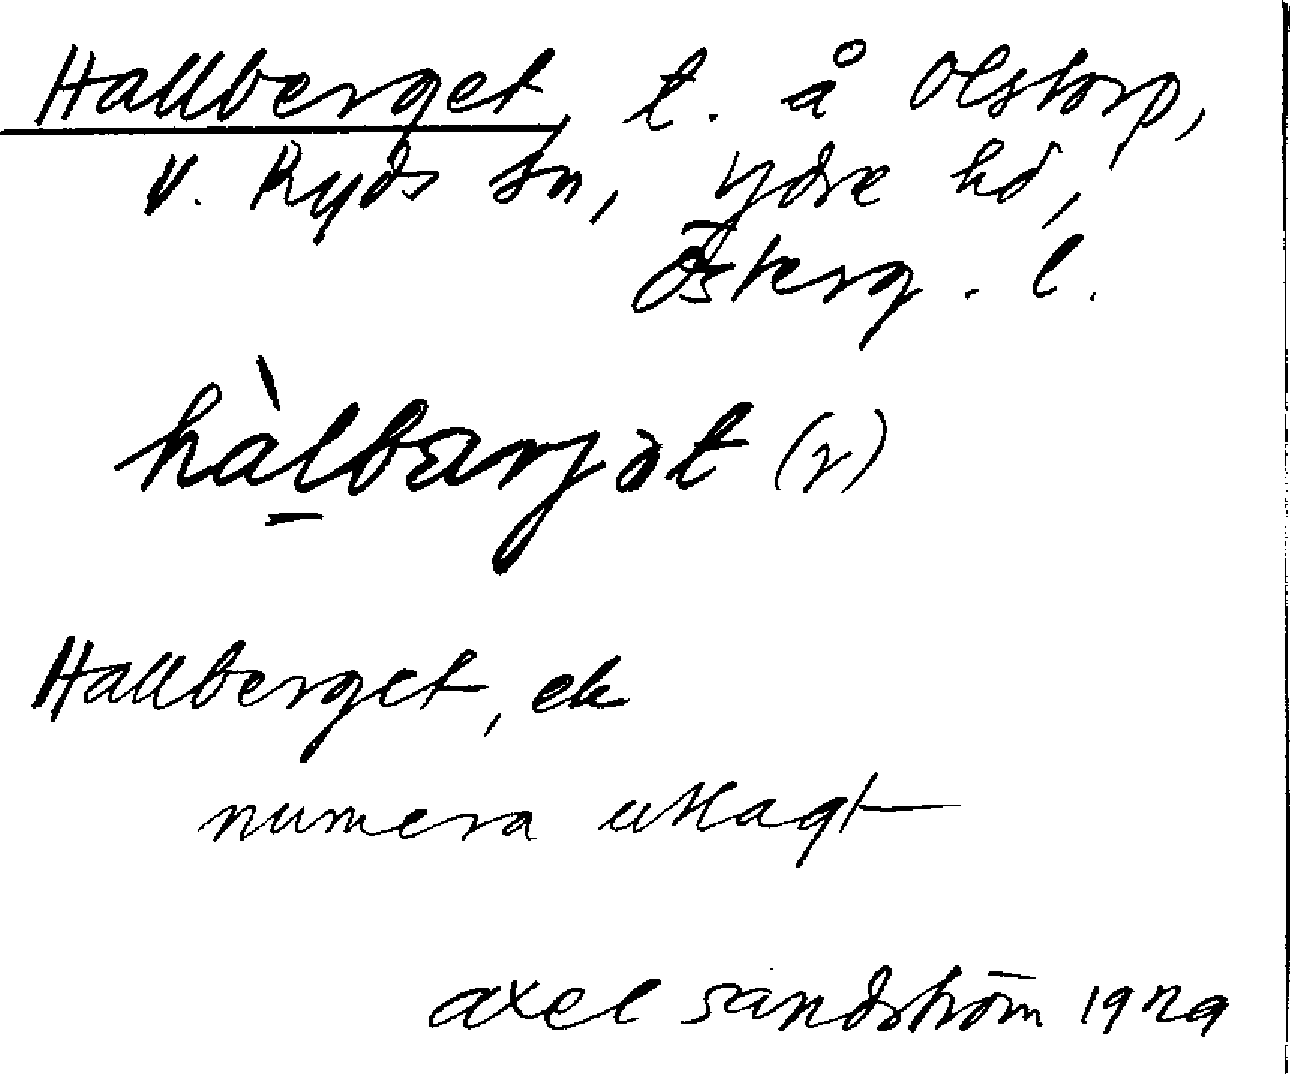 Hallberget, t. å Olstorp,
V. Ryds sn, Ydre hd,
Österg. l.
hàlbarjət (r)
Hallberget, ek
numera utlagt
Axel Sandström 1929